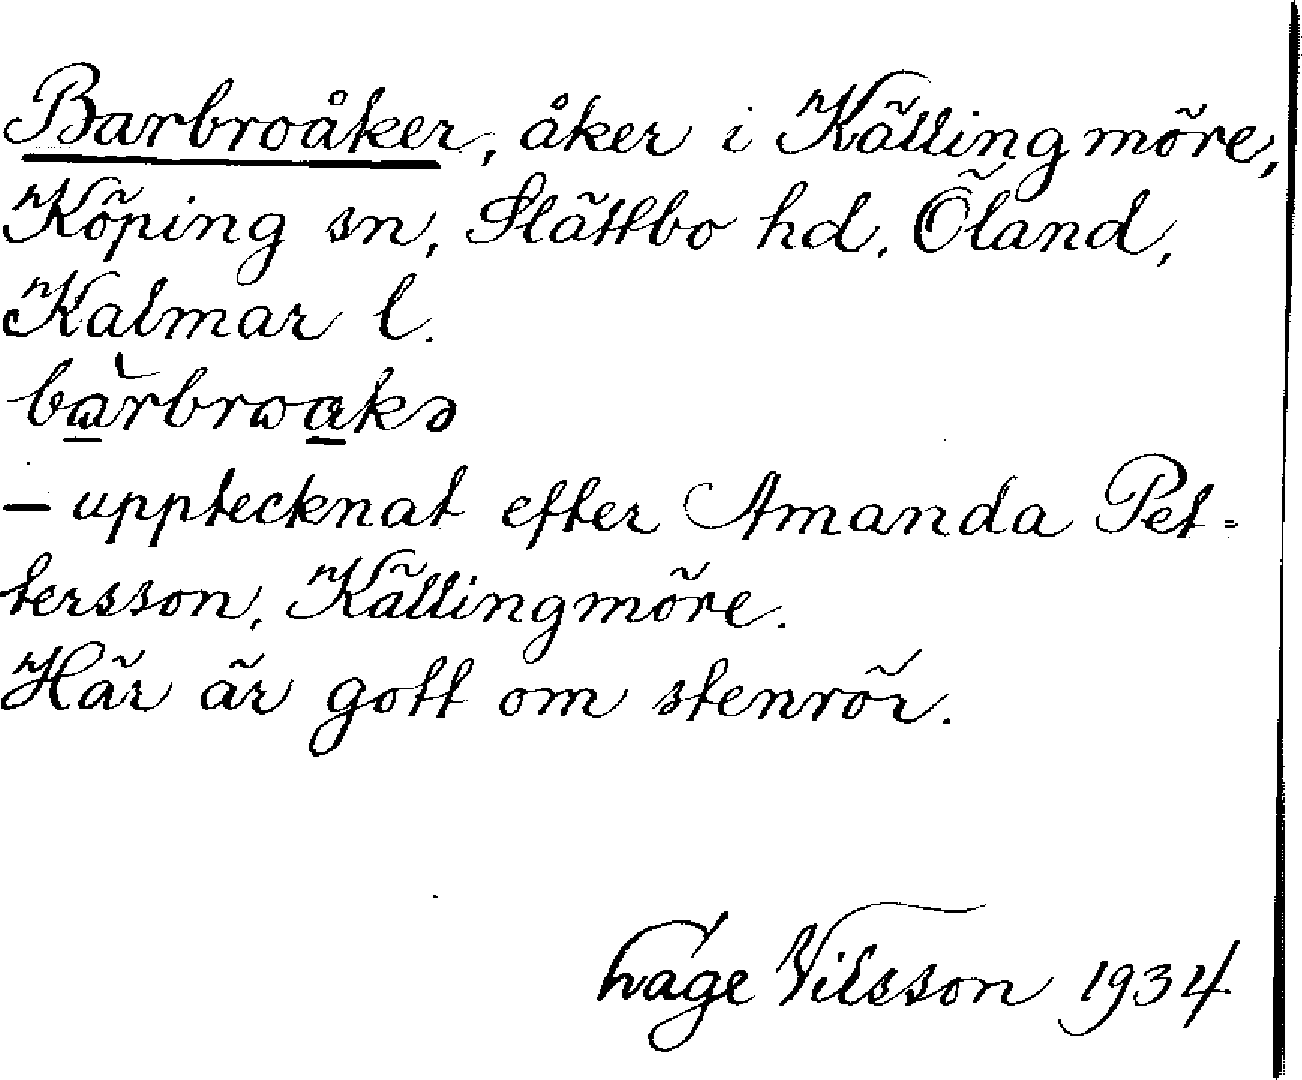 Barbroåker, åker i Källingmöre,
Köping sn, Slättbo hd, Öland,
Kalmar l.
bàrbroakə
– upptecknat efter Amanda Pet-
tersson, Källingmöre.
Här är gott om stenrör.
Nilsson 1934